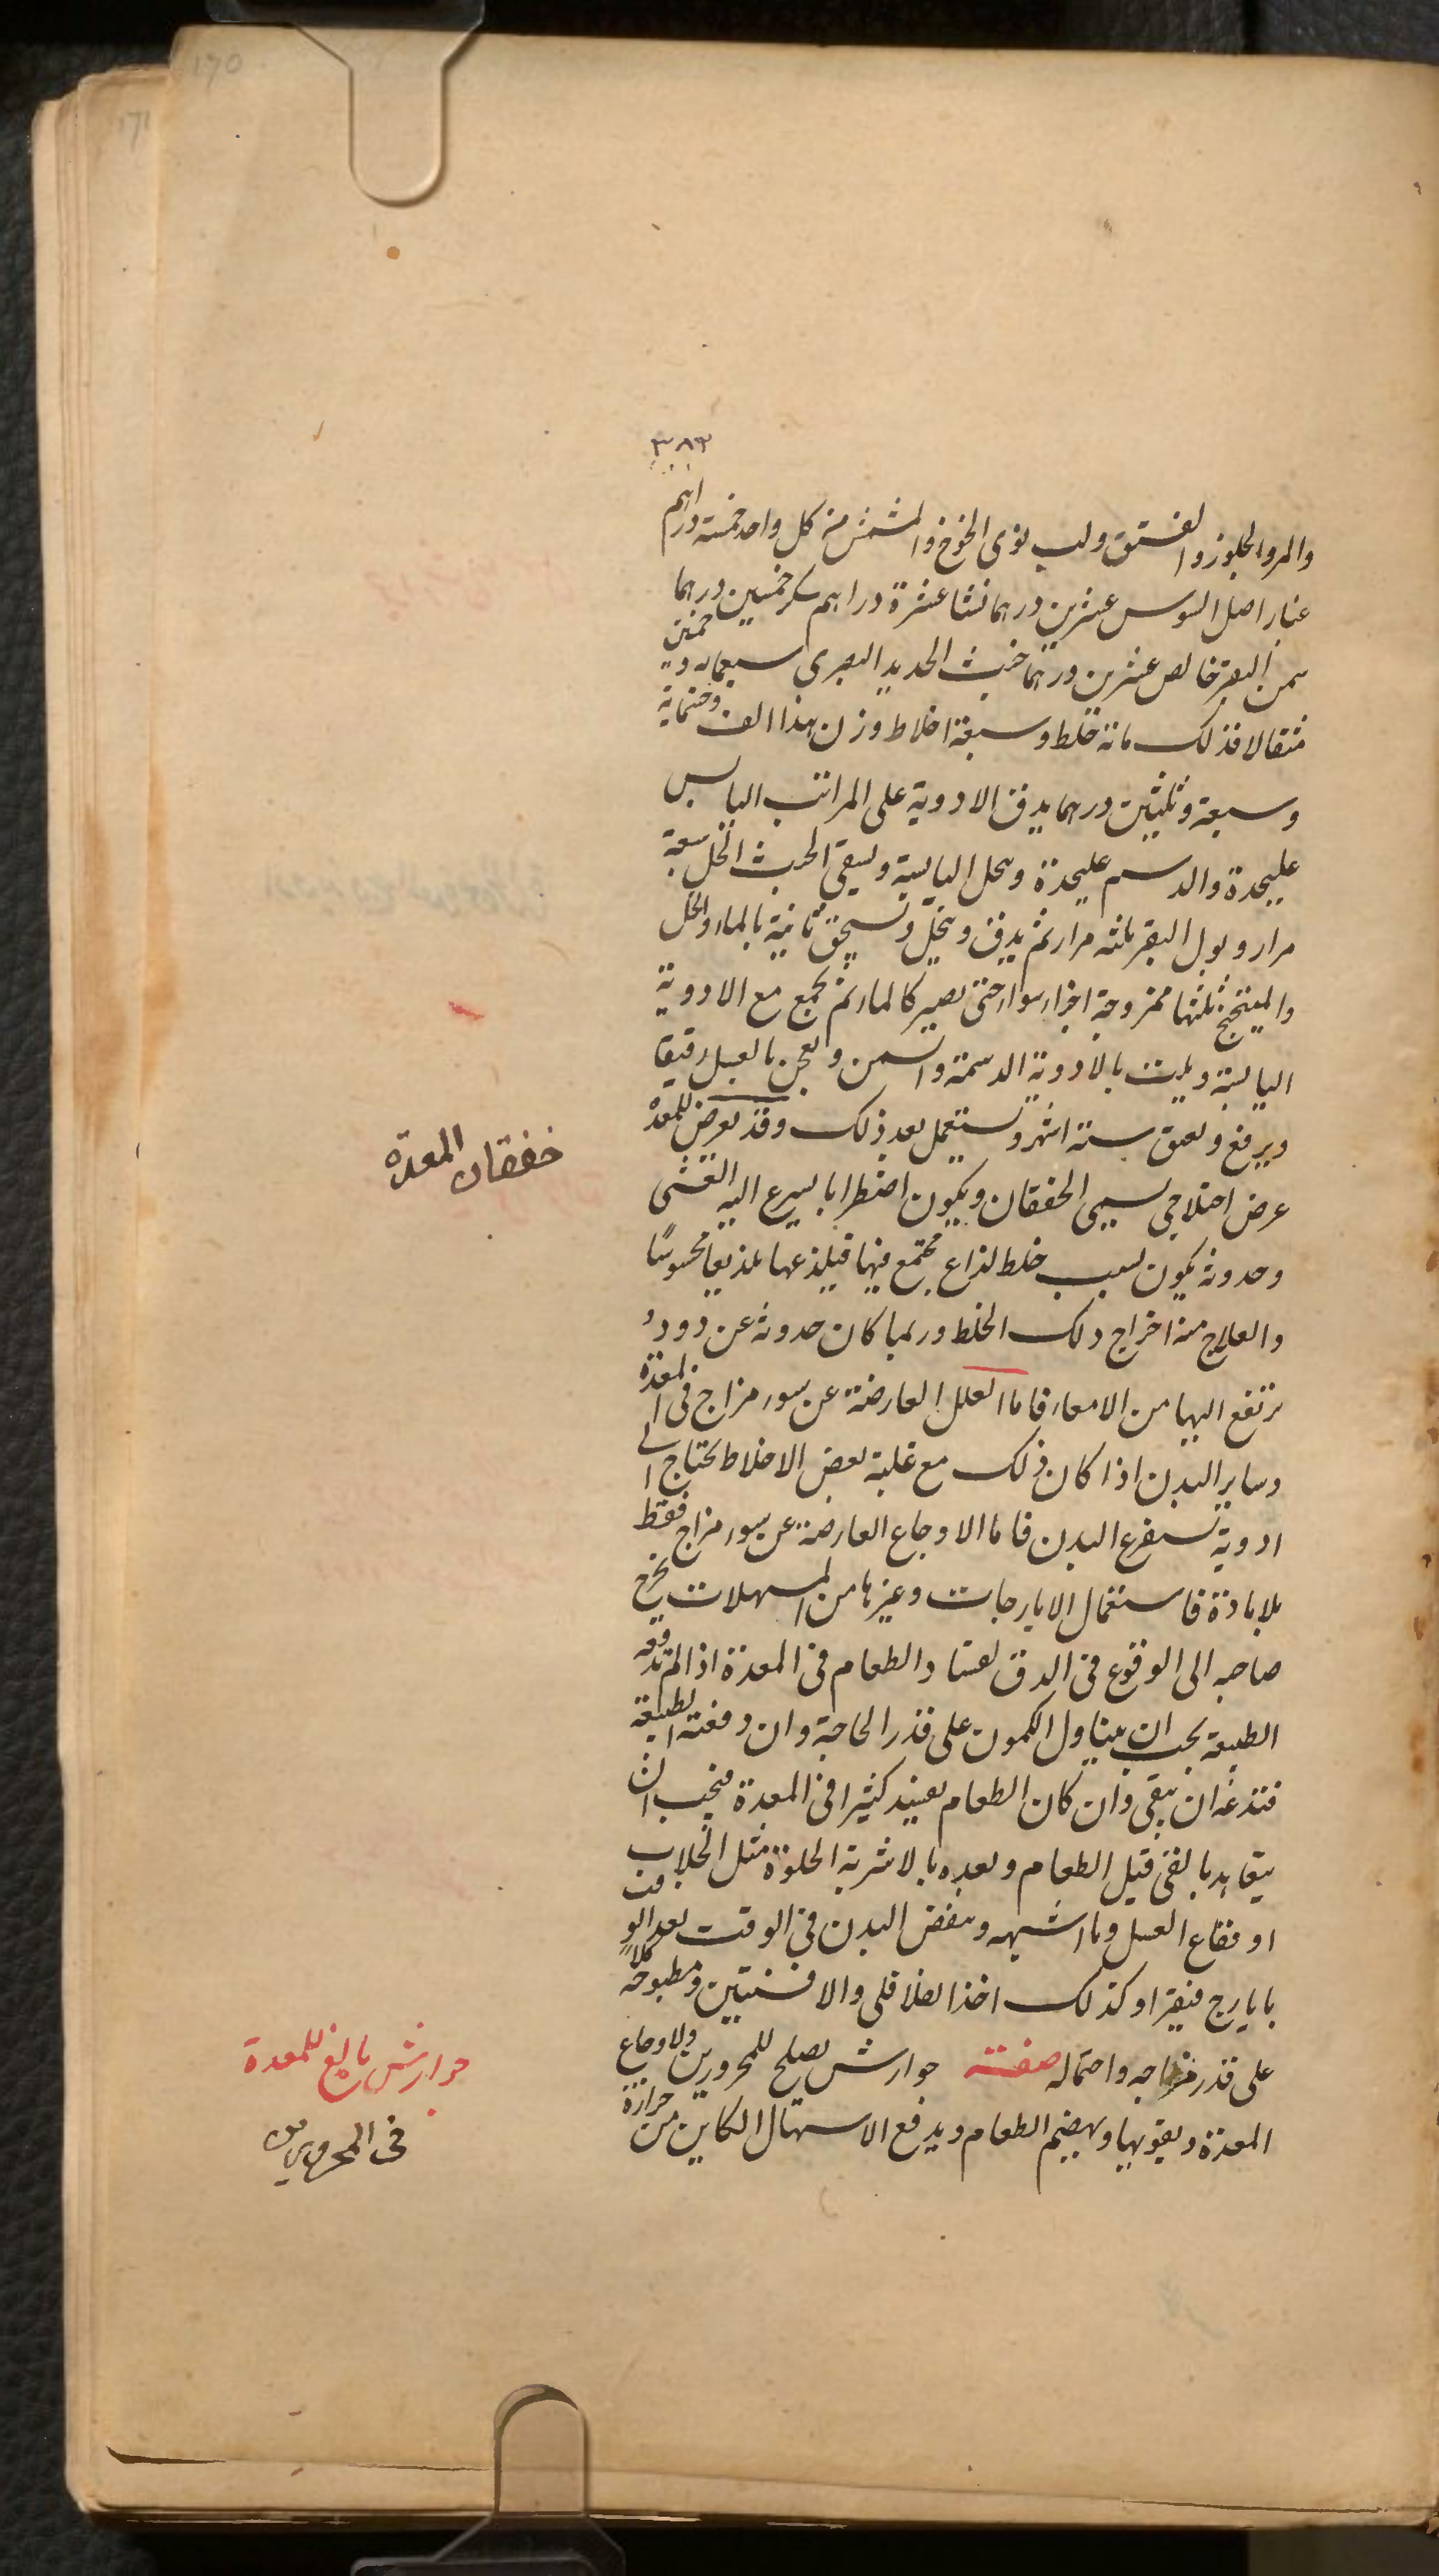 ٣٨٣
والمر والجلوز والفستق ولب نوى الخوخ والمشمش من كل واحد خمسة دراهم
غبار اصل السوس عشرين درهما نشا عشرة دراهم سكر خمسين درهما
سمن البقر خالص عشرين درهما خبث الحديد البصرى سبعمايه وخمسين
مثقالا فذلك مائة خلط وسبعة اخلاط وزن هذا الف وخمسماية
وسبعة وثلثين درهما يدق الادوية على المراتب اليابس
عليحدة والدسم عليحدة وينخل اليابسة ويسقى الخبث الخل سبعة
مرار وبول البقر ثلثه مرار ثم يدق وينخل ويسحق ثانية بالماء والخل
والميبختج ثلثها ممزوجة اجزاء سواء حتى يصير كالماء ثم يجمع مع الادوية
اليابسة ويلت بالادوية الدسمة والسمن ويعجن بالعسل رقيقا
ويرفع ويعتق ستة اشهر ويستعمل بعد ذلك وقد يعرض للمعدة
عرض اختلاجى يسمى الخفقان ويكون اضطرابا يسرع اليه الغشى
وحدوثه يكون لسبب خلط لذاع مجتمع فيها فيلذعها تلذيعا محسوسًا
والعلاج منه اخراج ذلك الخلط وربما كان حدوثه عن دود
ترتفع اليها من الامعاء فاما العلل العارضة عن سوء مزاج فى المعدة
وساير البدن اذا كان ذلك مع غلبة بعض الاخلاط يحتاج الى
ادوية تستفرغ البدن فاما الاوجاع العارضة عن سوء مزاج فقط
بلا مادة فاستعمال الايارجات وغيرها من المسهلات يخرج
صاحبه الى الوقوع فى الدق لفساد الطعام فى المعدة اذا لم تدفعه
الطبيعة يجب ان يتناول الكمون على قدر الحاجة وان دفعته الطبيعة
فتدعه ان يبقى وان كان الطعام يفسد كثيرا فى المعدة فيجب ان
يتعاهد بالقى قبل الطعام وبعده بالاشربة الحلوة مثل الجلاب
او فقاع العسل وما اشبهه وينفض البدن فى الوقت بعد الوقت
بايارج فيقرا وكذلك اخذ الفلافلى والافسنتين ومطبوخه كلا
على قدر مزاجه واحتماله صفته جوارش يصلح للمحرورين ولاوجاع
المعدة ويقويها ويهضم الطعام ويدفع الاسهال الكاين من حرارة
خفقان المعدة
جوارش بالغ للمعدة
فى المحرورين